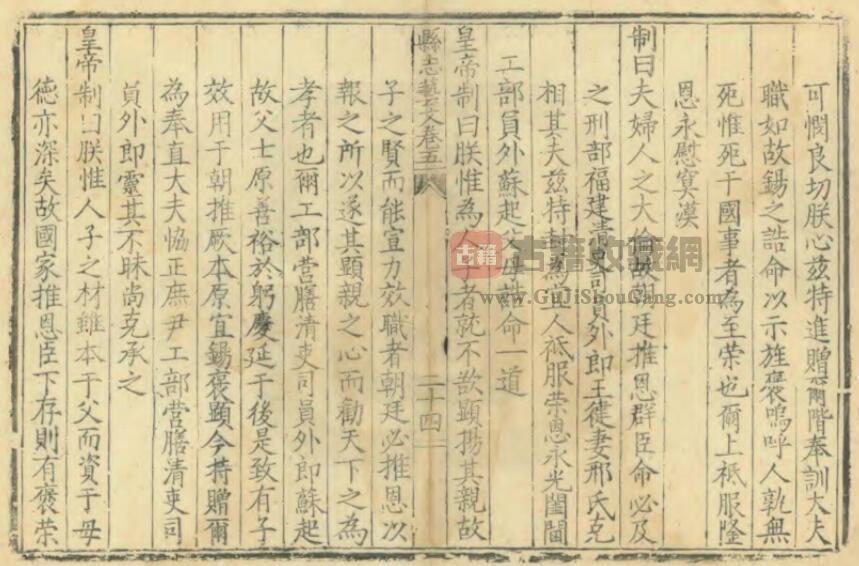 可憫良切朕心茲特進贈爾階奉訓大夫
職如故錫之誥命以示旌褒嗚呼人孰無
死惟死于國事者為至荣也爾上祗服隆
恩永慰冥漠
制曰夫婦人之大倫故朝廷推恩群臣命必及
之刑部福建清吏司員外郎王健妻邢氏克
相其夫茲特封為宜人祗服荣恩永光閨閫
工部員外蘇起父母誥命一道
皇帝制曰朕惟為人子者孰不欲顯揚其親故
縣志藝文卷五
二十四
子之賢而能宣力效職者朝廷必推恩以
報之所以遂其顯親之心而勸天下之為
孝者也爾工部营膳清吏司員外郎蘇起
故父士原善裕於躬慶延于後是致有子
效用于朝推厥本原宜錫褒顯今特贈爾
為奉直大夫恊正庶尹工部营膳清吏司
員外郎靈其不昧尚克承之
皇帝制曰朕惟人子之材雖本于父而資于母
德亦深矣故國家推恩臣下存則有褒荣
古籍
古籍收藏網
www.GuJiShouCang.com